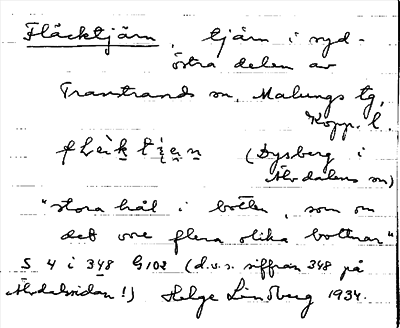 Fläcktjärn, tjärn i syd-
östra delen av
Transtrands sn, Malungs tg,
Kopp. l.
(Dysberg i
Älvdalens sn)
"stora hål i botten, som om
det vore flera olika bottnar"
S 4 i 348 G102 (d.v.s. siffran 348 på
Älvdalsidan!) Helge Lindberg 1934.